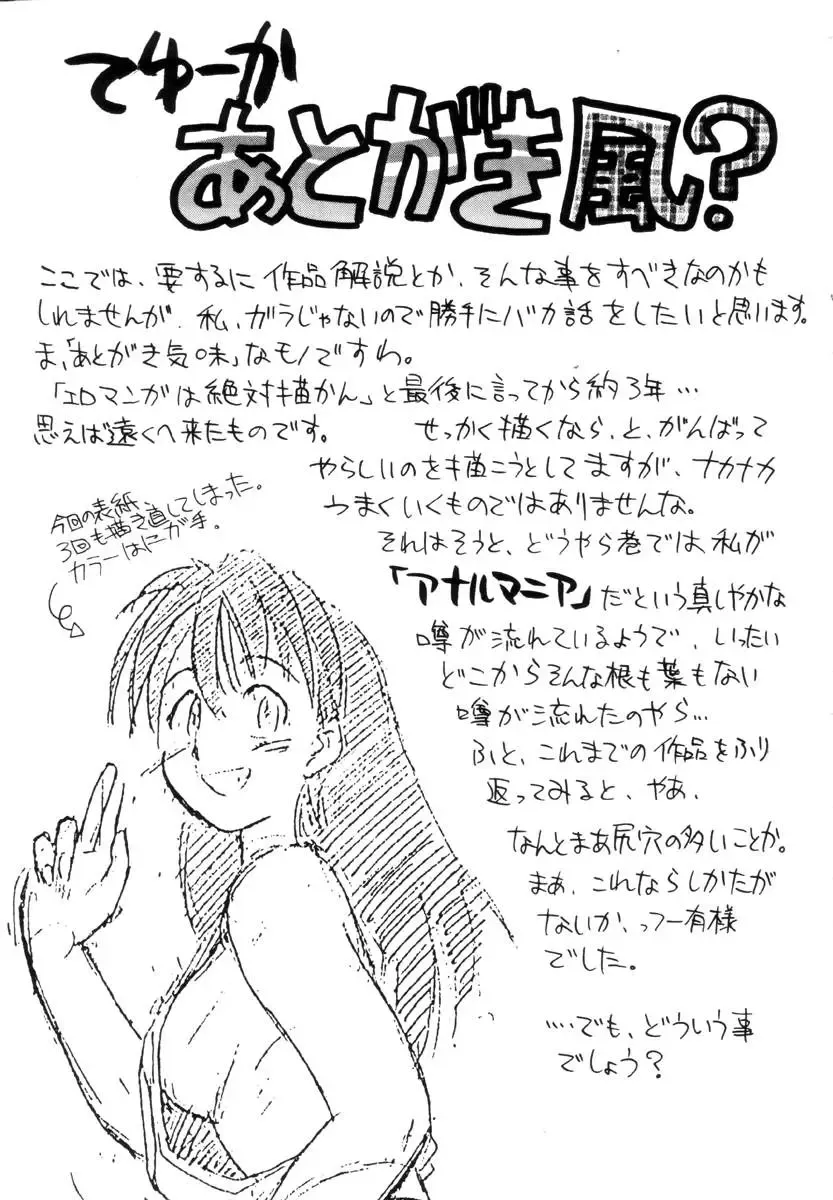 てゆーか
あとがき風?
ここでは、要するに作品解説とか、そんな事をすべきなのかも
しれませんが、私、ガラじゃないので勝手にバカ話をしたいと思います。
ま、「あとがき気味」なモノですわ。
「エロマンガは絶対描かん」と最後に言ってから約3年…
思えば遠くへ来たものです。
せっかく描くなら、と、がんばって
やらしいのを描こうとしてますが、ナカナカ
うまくいくものではありませんな。
それはそうと、どうやら巷では私が
「アナルマニア」だという真しやかな
噂が流れているようで、いったい
どこからそんな根も葉もない
噂が流れたのやら…
ふと、これまでの作品をふり
返ってみると、やあ、
なんとまあ尻穴の多いことか。
まぁ、これならしかたが
ないか、っつー有様
でした。
‥‥でも、どういう事
でしょう?
今回の表紙
3回も描き直してしまった。
カラーはにが手。